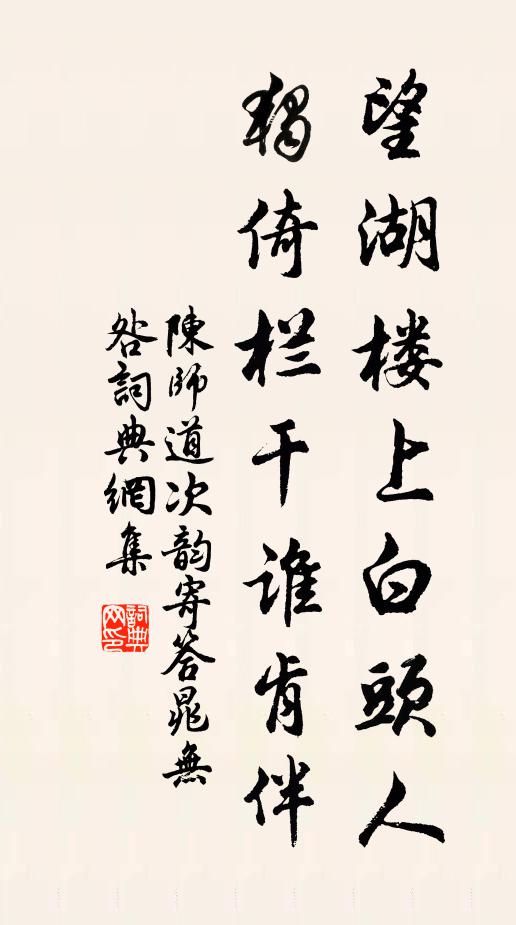 望湖楼上白頭人
獨倚栏干谁肯伴
陳師道次韵寄答晁無
咎詞典網集
詞典
网印